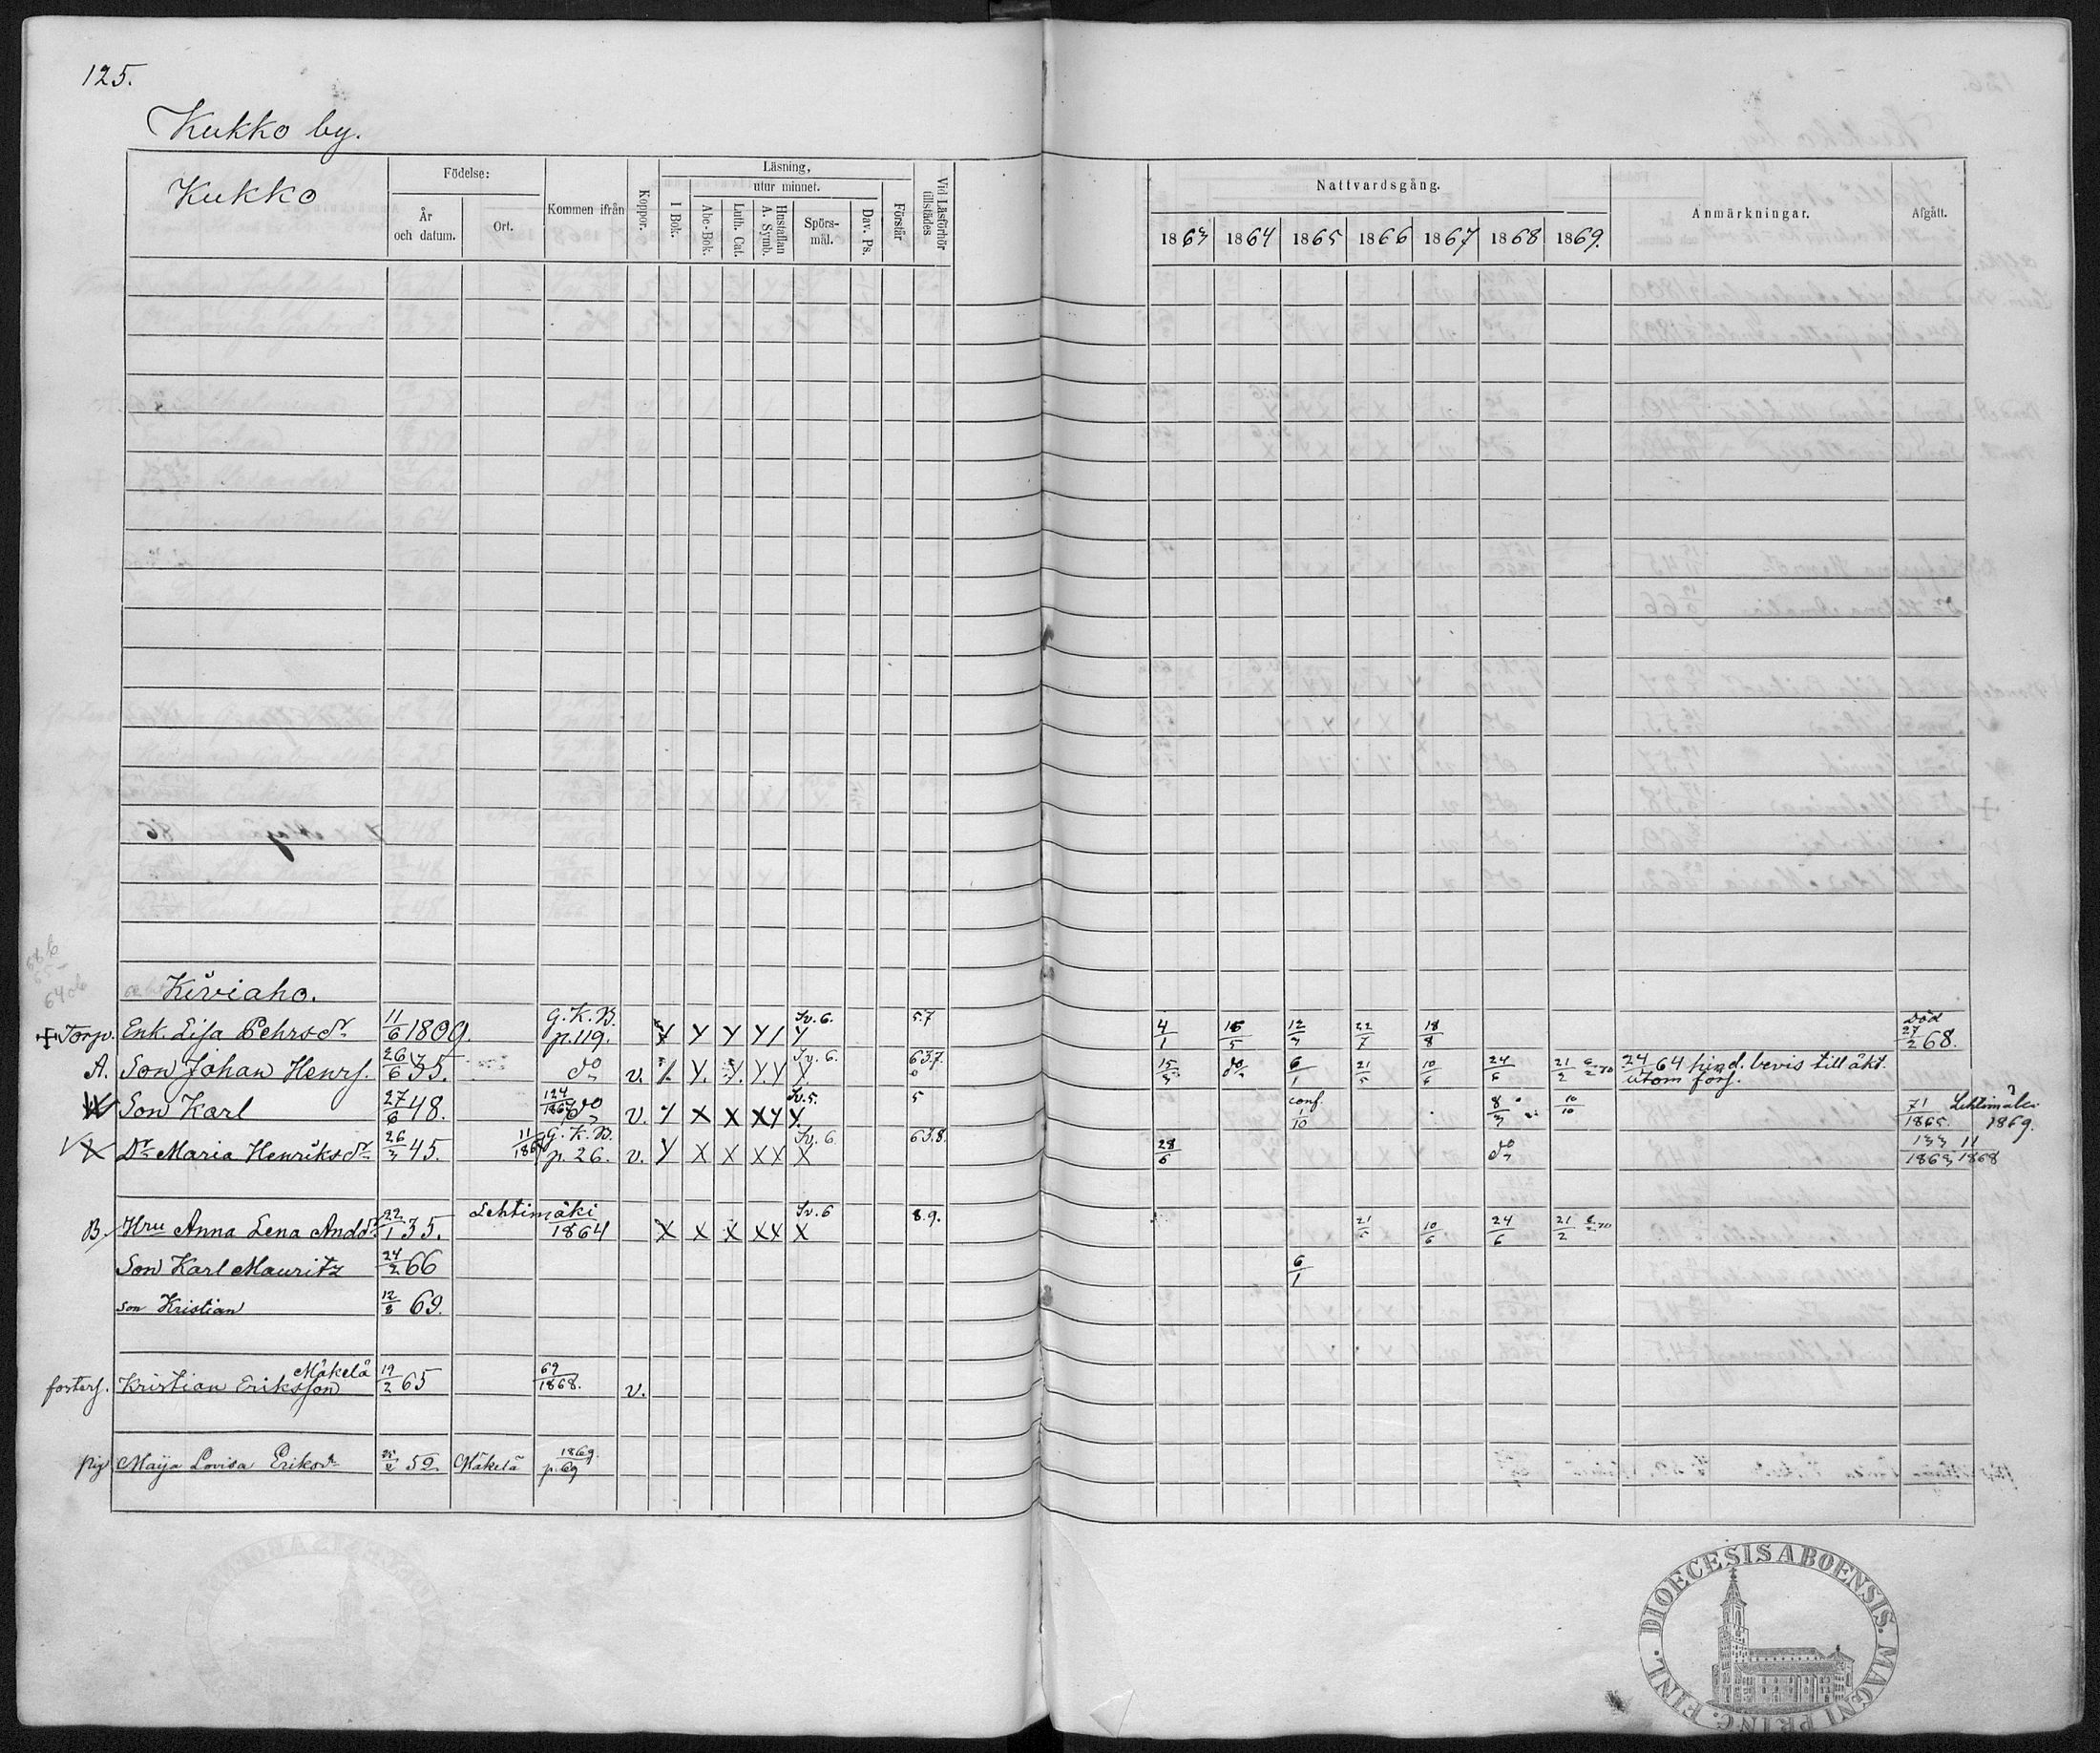 125.
Kukko by.
Kukko
Födelse:
År och datum.
Ort.
Kommen ifrån
Koppor.
Läsning,
utur minnet.
I Bok.
Abc-Bok.
Luth. Cat.
Hustaflan A. Symb.
Spörs-mål.
Dav. Ps.
Förstår
Vid Läsförhör tillstädes
Nattvardsgång.
1863 1864 1865 1866 1867 1868 1869.
Anmärkningar.
Afgått.
Kiviaho.
Torp. Enk. Lisa Pehrsdr 11/6 1809. G.K.B. p. 119. Y Y Y Y / Y Sv. 6. 5.7 4/1 12/3 22/7 18/8 död 27/2 68.
A. Son Johan Henrs. 26/6 35. do v. Y. Y. Y. Y Y. Sv. 6. 637. do 6/1 10/6 24/6 21/2 24/ 64 hind. bevis till äkt. utom förs.
Son Karl 27/6 48. 124/1867 do v. X X X Y Y. Sv. 5. 5 conf. 1/10 8/3 10/10 71/1865. Lehtimäki 1869.
Dr Maria Henriksdr 26/3 45. G.K.B. p. 26. v. Y X X X X X Sv. 6. 638. 28/6 do 133/1863 11/1868
B. Hru Anna Lena Anddr 22/1 35. Lehtimäki 1864 X X X X X X Sv. 6 8.9. 21/6 10/6 24/6 21/2
Son Karl Mauritz 24/2 66 6/1
son Kristian 12/8 69.
Mäkelä
forters. Kristian Eriksson 19/2 65 69/1868. v.
pig. Maija Lovisa Eriksdr 52. Mäkelä 1869. p. 69
DIOECESIS ABOENSIS. MAGNI PRINC. FINL.